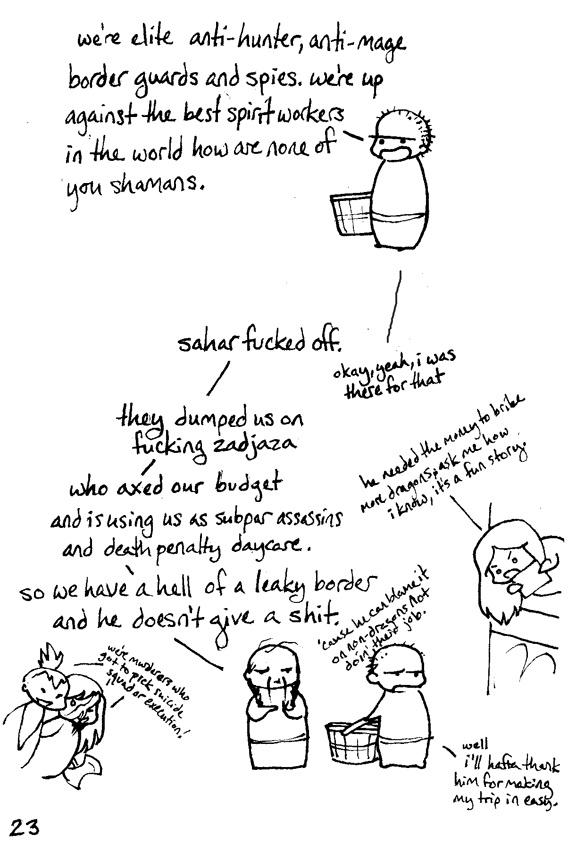 we're elite anti-hunter, anti-mage
border guards and spies. we're up
against the best spirit workers
in the world how are none of
you shamans.
okay, yeah, i was
there for that
sahar fucked off.
they dumped us on
fucking zadjaza
who axed our budget
and is using us as subpar assassins
and death penalty daycare.
so we have a hell of a leaky border
and he doesn't give a shit.
he needed the money to bribe
more dragons, ask me how
i know, it's a fun story.
'cause he can blame it
on non-dragons not
doin' their job.
we're murderers who
got to pick suicide
squad or execution!
well
i'll hafta thank
him for making
my trip in easy.
23